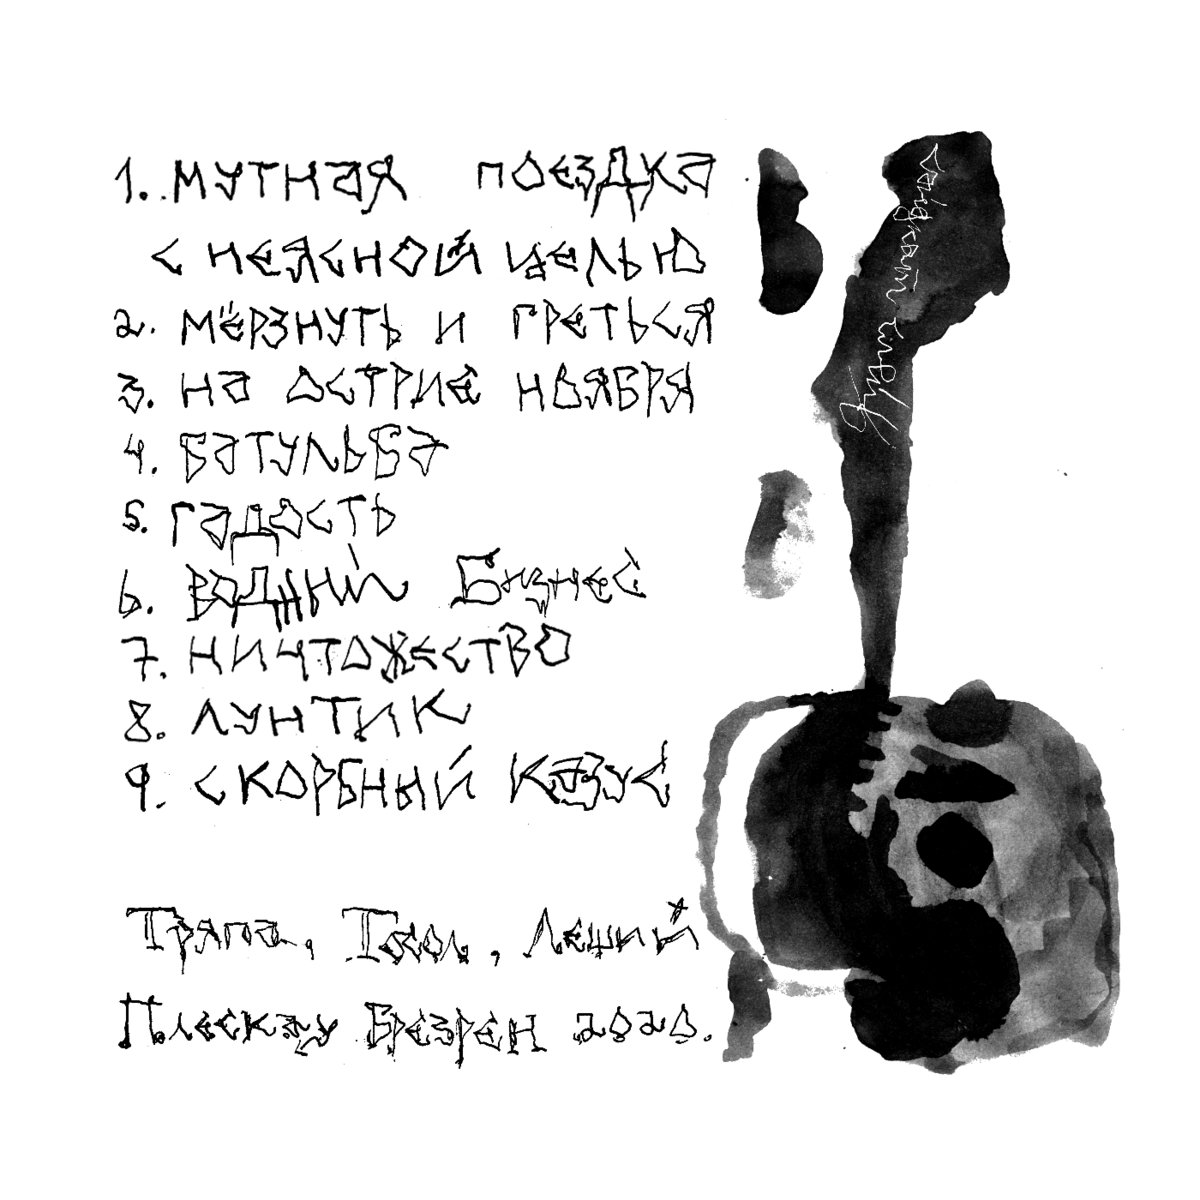 1. МУТНАЯ ПОЕЗДКА
С НЕЯСНОЙ ЦЕЛЬЮ
2. МЁРЗНУТЬ И ГРЕТЬСЯ
3. НА ОСТРИЕ НОЯБРЯ
4. БАТУЛЬБА
5. ГАДОСТЬ
6. ВОДНЫЙ БИЗНЕС
7. НИЧТОЖЕСТВО
8. ЛУНТИК
9. СКОРБНЫЙ КАЗУС
Тряпа, Тосол, Леший
БРЕЗРЕН 2020.